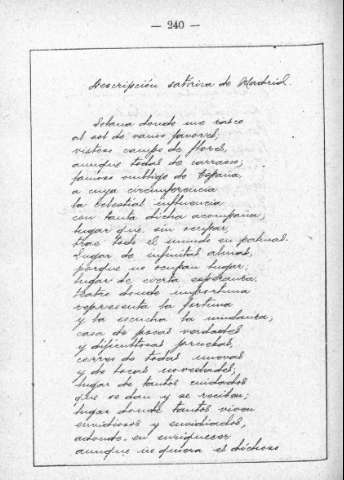 — 240 —
Descripción satírica de Madrid.
Solana donde me rasco
al sol de vanos favores;
vistoso campo de flores,
aunque todas de carrasco;
famoso ombligo de España,
a cuya circunferencia
la celestial influencia
con tanta dicha acompaña;
lugar que, sin ocupar,
trae todo el mundo en
lugar de infinitas almas,
porque no ocupan lugar;
lugar de cierta esperanza.
teatro donde importuna
representa la fortuna
y la escucha la mudanza,
casa de pocas verdades
y dificultosas pruebas,
correo de todas nuevas
y de locas novedades;
lugar de tantos cuidados
que se dan y se reciben;
lugar donde tantos viven
envidiosos y envidiados,
adonde, en enriquecer
aunque no quiera el dichoso